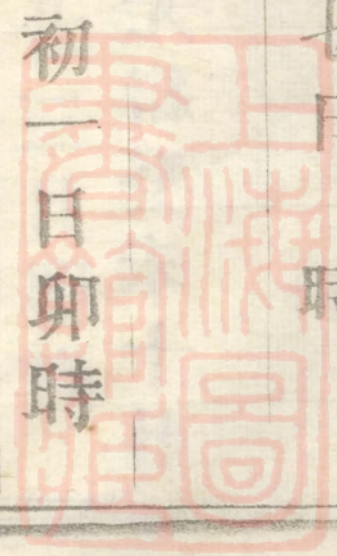 初一日卯時
上海圖
書館藏